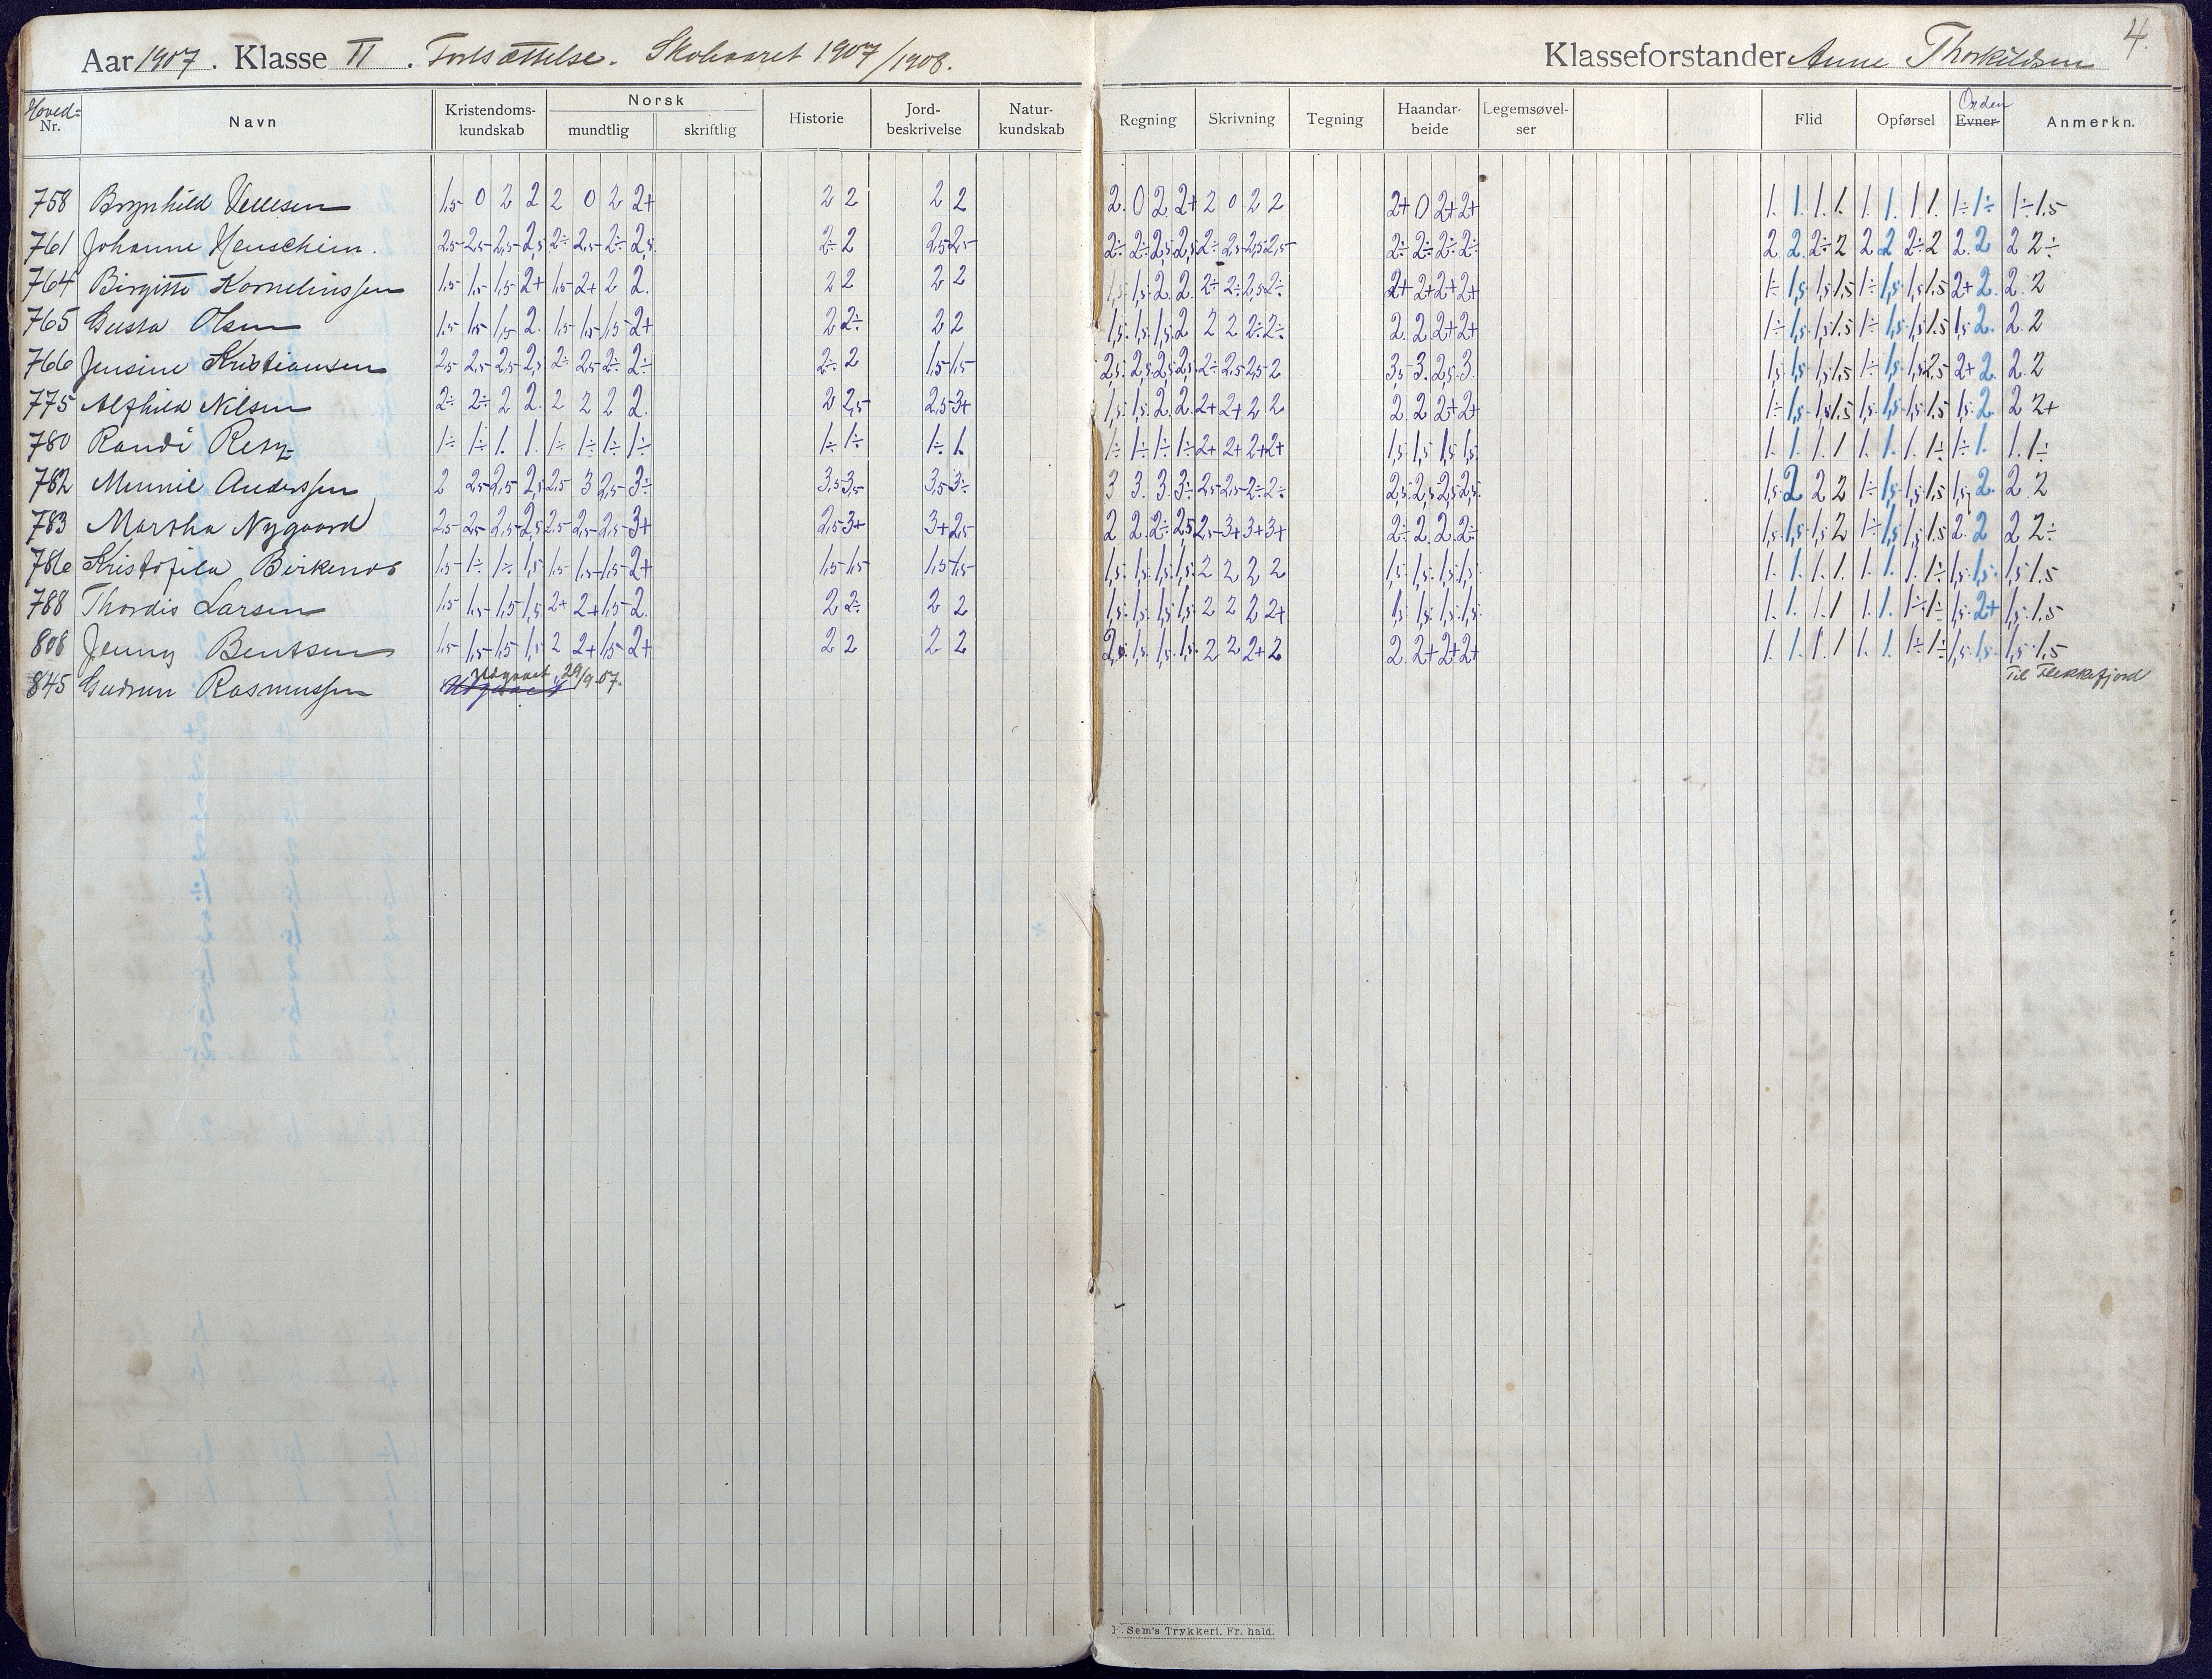 4.
Aar 1907. Klasse II. Fortsættelse. Skoleaaret 1907/1908. Klasseforstander Anne Thorkildsen
Hoved= Nr. Navn Kristendoms-kundskab Norsk mundtlig skriftlig Historie Jord-beskrivelse Natur-kundskab Regning Skrivning Tegning Haandar-beide Legemsøvel-ser Flid Opførsel Orden Evner Anmerkn.
758 Brynhild 1,5 0 2 2 2 0 2 2+ 2 2 2 2 2. 0 2 2+ 2 0 2 2 2+ 0 2+ 2+ 1. 1. 1. 1. 1. 1. 1. 1. 1÷ 1÷ 1÷ 1,5
761 Johanne 2,5 2,5 2,5 2,5 2÷ 2,5 2÷ 2,5 2÷ 2 2,5 2,5 2÷ 2÷ 2,5 2,5 2÷ 2,5 2,5 2,5 2÷ 2÷ 2÷ 2÷ 2. 2. 2÷ 2 2 2 2÷ 2 2. 2 2 2÷
764 Birgitte Kornelinssen 1,5 1,5 1,5 2+ 1,5 2+ 2 2. 2 2 2 2 1,5 1,5 2. 2. 2÷ 2÷ 2,5 2÷ 2+ 2+ 2+ 2+ 1÷ 1,5 1,5 1,5 1÷ 1,5 1,5 1.5 2+ 2. 2. 2
765 Gusta Olsen 1,5 1,5 1,5 2. 1,5 1,5 1,5 2+ 2 2÷ 2 2 1,5 1,5 1,5 2 2 2 2÷ 2÷ 2. 2. 2+ 2+ 1÷ 1,5 1,5 1.5 1÷ 1,5 1,5 1.5 1,5 2. 2. 2
766 Jensine Kristiansen 2,5 2,5 2,5 2,5 2÷ 2,5 2÷ 2÷ 2÷ 2 1,5 1,5 2,5 2,5 2,5 2,5 2÷ 2,5 2,5 2 3,5 3. 2,5 3. 1,5 1,5 1,5 1,5 1÷ 1,5 1,5 2.5 2+ 2. 2. 2
775 Alfhild Nilsen 2÷ 2÷ 2 2. 2 2 2 2. 2 2,5 2,5 3+ 1,5 1,5 2. 2. 2+ 2+ 2 2 2. 2 2+ 2+ 1÷ 1,5 1,5 1.5 1,5 1,5 1,5 1.5 1,5 2. 2 2+
780 Randi 1÷ 1÷ 1. 1. 1÷ 1÷ 1÷ 1÷ 1÷ 1÷ 1÷ 1. 1÷ 1÷ 1÷ 1÷ 2+ 2+ 2+ 2+ 1,5 1,5 1,5 1,5 1. 1. 1. 1 1. 1. 1. 1÷ 1÷ 1. 1. 1÷
782 Minnie Anderssen 2 2,5 2,5 2,5 2,5 3 2,5 3÷ 3,5 3,5 3,5 3÷ 3 3. 3. 3÷ 2,5 2,5 2÷ 2÷ 2,5 2,5 2,5 2,5 1,5 2 2 2 1÷ 1,5 1,5 1.5 1,5 2. 2. 2
783 Martha Nygaard 2,5 2,5 2,5 2,5 2,5 2,5 2,5 3+ 2,5 3+ 3+ 2,5 2 2. 2÷ 2,5 2,5 3+ 3+ 3+ 2÷ 2. 2. 2÷ 1,5 1,5 1,5 2 1÷ 1,5 1,5 1.5 2. 2 2 2÷
786 Kristofila Birkenos 1,5 1÷ 1÷ 1,5 1,5 1,5 1,5 2+ 1,5 1,5 1,5 1,5 1,5 1,5 1,5 1,5 2 2 2 2 1,5 1,5 1,5 1,5 1. 1. 1. 1. 1. 1. 1. 1÷ 1,5 1,5 1,5 1.5
788 Thordis Larsen 1,5 1,5 1,5 1,5 2+ 2+ 1,5 2. 2 2÷ 2 2 1,5 1,5 1,5 1,5 2 2 2 2+ 1,5 1,5 1,5 1,5 1. 1. 1. 1 1. 1. 1÷ 1÷ 1,5 2+ 1,5 1.5
808 Jenny Bentsen 1,5 1,5 1,5 1,5 2 2+ 1,5 2+ 2 2 2 2 2. 1,5 1,5 1,5 2 2 2+ 2 2. 2+ 2+ 2+ 1. 1. 1. 1 1. 1. 1÷ 1÷ 1,5 1,5 1,5 1.5
845 Gudrun Rasmussen Udgaaet 29/9 07. Til Flekkefjord
Udgaaet
F. Sem's Trykkeri, Fr. hald.